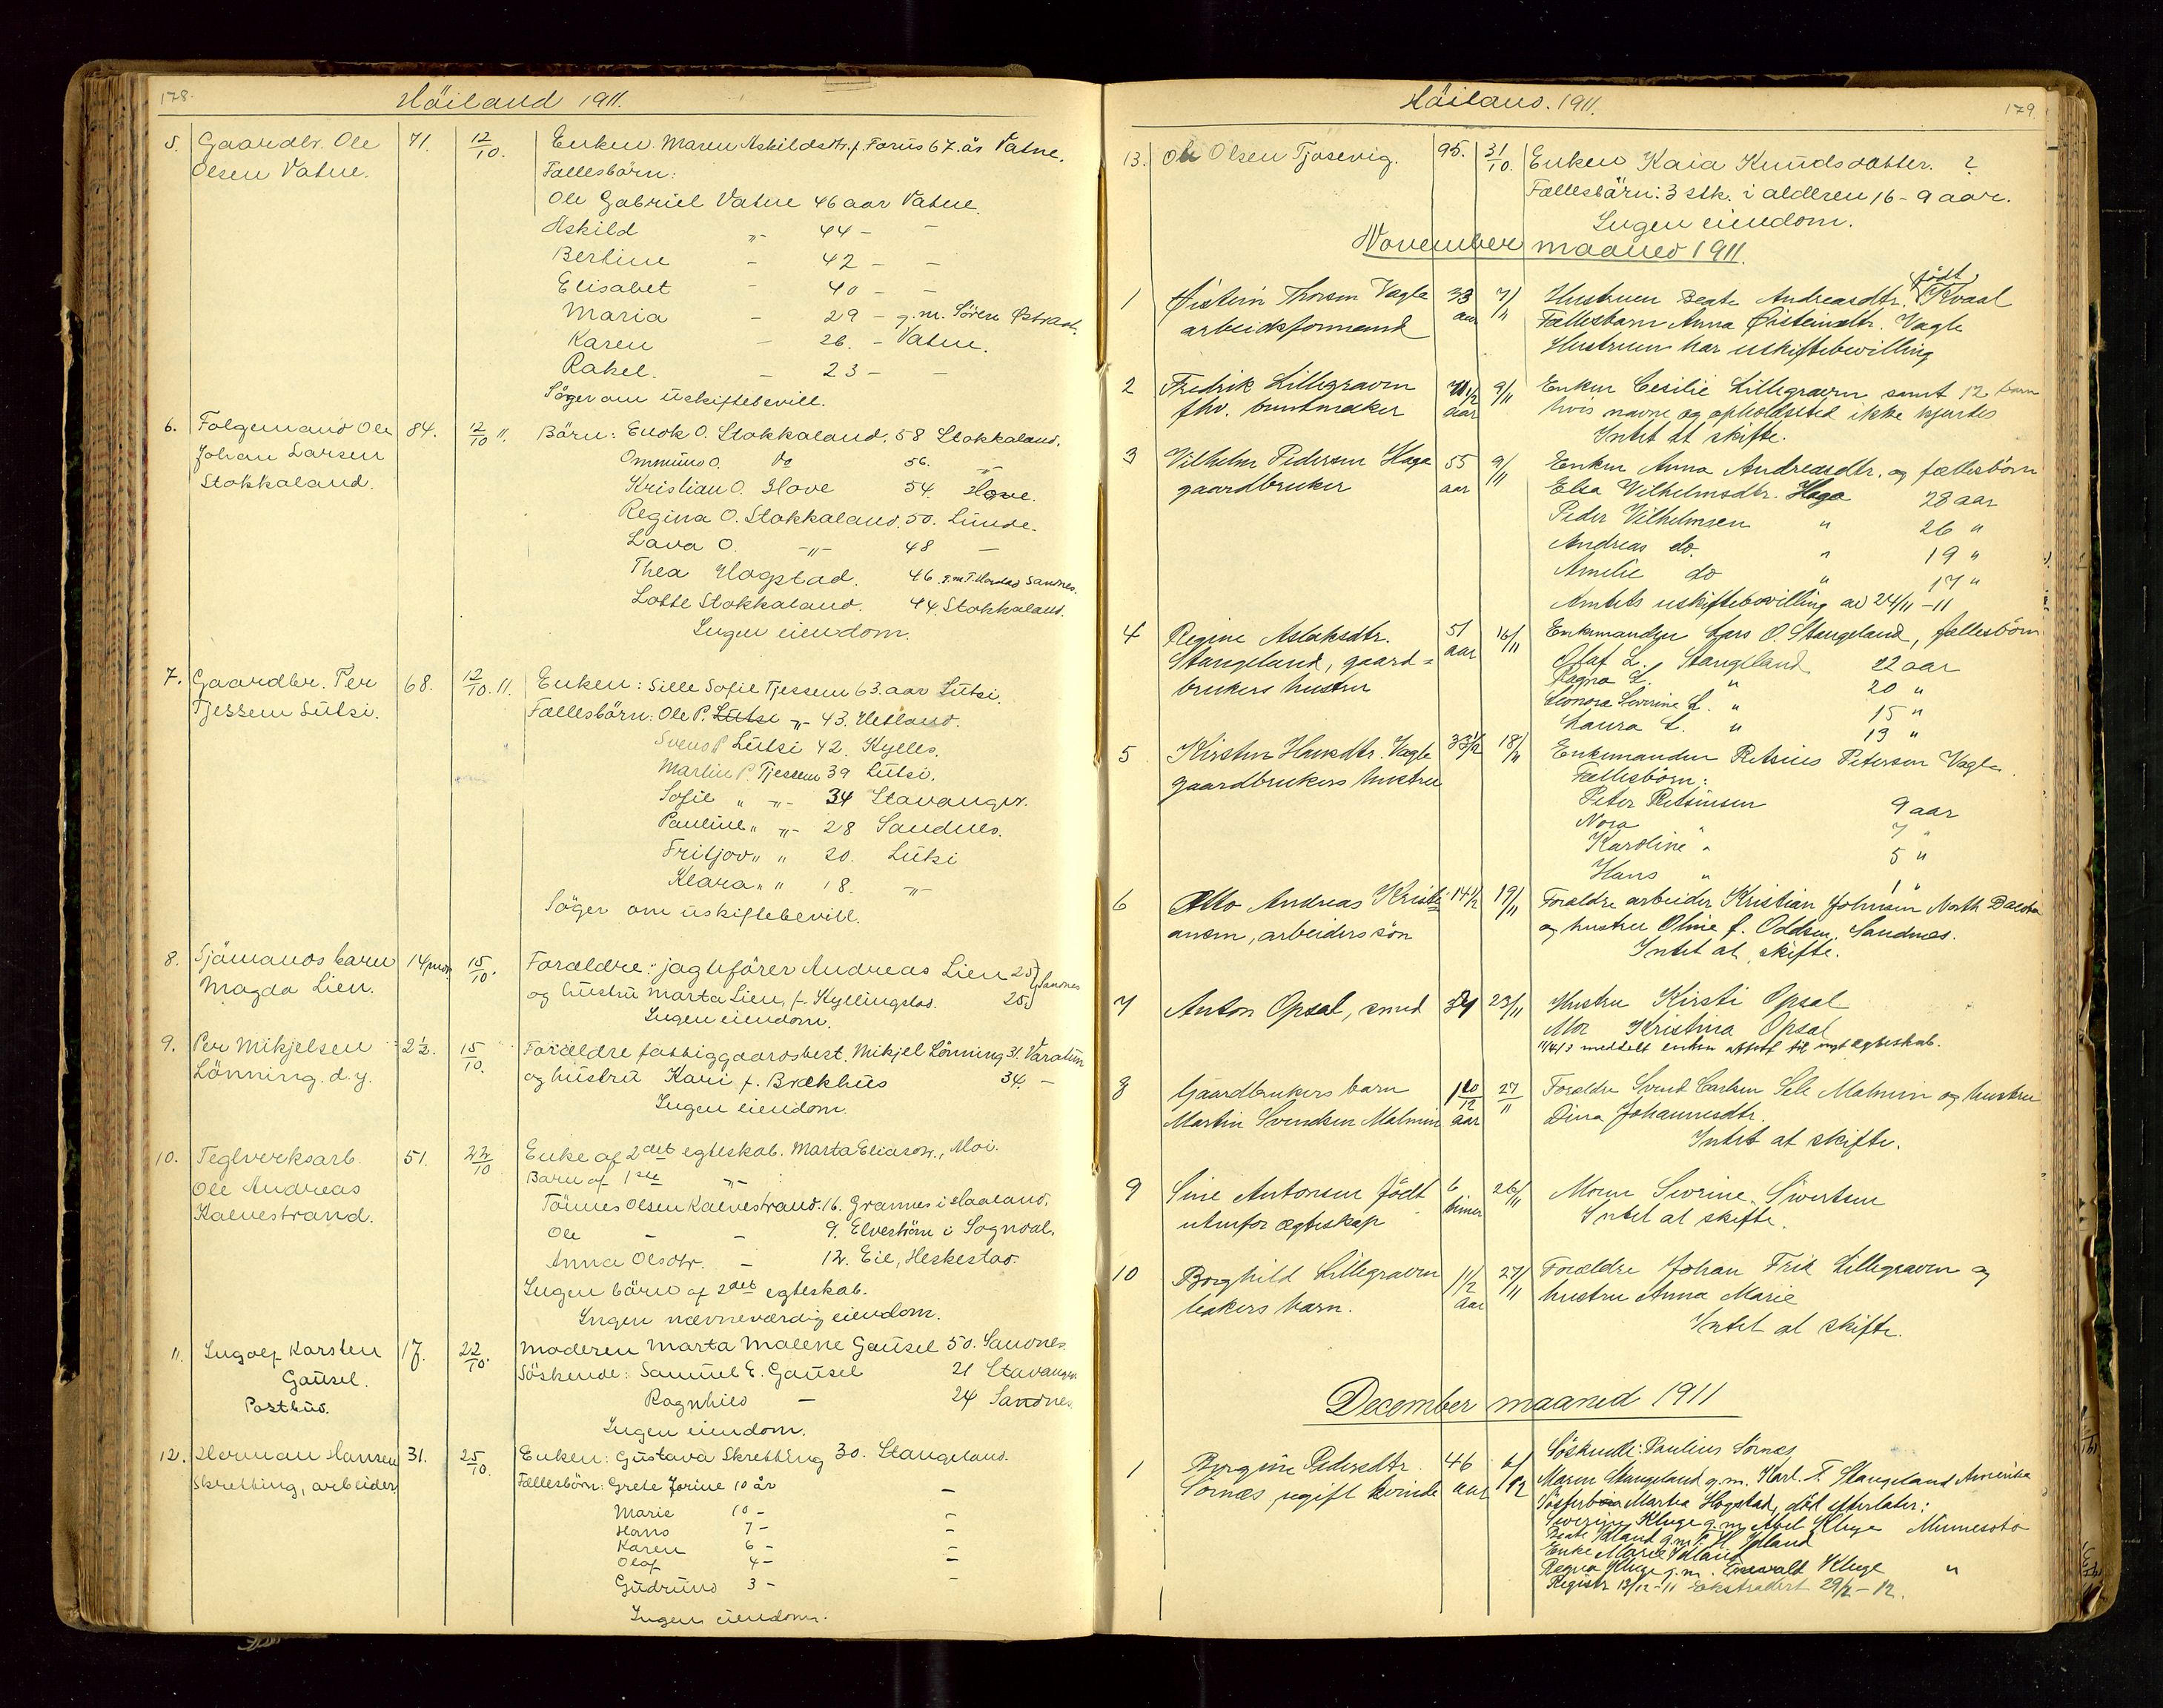 178.
Höiland 1911.
5. Gaardbr. Ole Olsen Vatne. 71. 12/10. Enken. Maren Askildsdtr. f. Forus 67. år Vatne.
Fællesbörn:
Ole Gabriel Vatne 46 aar Vatne.
Askild " 44 - -
Bertine - 42 - -
Elisabet - 40 - -
Maria - 29 - g.m. Sören
Karen - 26. - Vatne.
Rakel. - 23 - -
Söger om uskiftebevill.
6. Folgemand Ole Johan Larsen Stokkaland. 84. 12/10 11. Börn: Enok O. Stokkaland. 58 Stokkaland.
Ommund O. do 56. -"-
Kristian O. Hove 54. Hove.
Regina O. Stokkaland. 50. Lunde.
Lava O. -"- 48 -
Thea Hogstad. 46. g.m. T. Hogstad Sandnes.
Lotte Stokkaland. 44. Stokkaland.
Ingen eiendom.
7. Gaardbr. Per Tjessem Lutsi. 68. 12/10. 11. Enken: Sille Sofie Tjessem 63. aar Lutsi.
Fællesbörn: Ole P. Lutsi -"- 43. Hetland.
Svend P. Lutsi 42. Kylles.
Martin P. Tjessem 39 Lutsi.
Sofie " -"- 34 Stavanger.
Pauline " -"- 28 Sandnes.
Fritjov " " 20. Lutsi
Klara " " 18. -"-
Söger om uskiftebevill.
8. Sjömands barn Magda Lien. 14 mdr. 15/10. Forældre: jagtförer Andreas Lien 25 } Sandnes
og hustru Marta Lien, f. Kyllingstad. 25. }
Ingen eiendom.
9. Per Mikjelsen Lönning. d.y. 2 1/2. 15/10. Forældre fattiggaardsbest. Mikjel Lönning 31. Varatun
og hustru Kari f. Brækhus 34. -
Ingen eiendom.
10. Teglverksarb. Ole Andreas Kalvestrand. 51. 22/10 Enke af 2det egteskab. Marta Eliasdtr., Moi.
Barn af 1ste -"- :
Tönnes Olsen Kalvestrand. 16. Grannes i Haaland.
Ole - - 9. Elveström i Sogndal.
Anna Olsdtr. - 12. Eie, Heskestad.
Ingen börn af 2det egteskab.
Ingen nævneværdig eiendom.
11. Ingolf Karsten Gausel. Postbud. 17. 22/10. Moderen Marta Malene Gausel 50. Sandnes.
Söskende: Samuel E. Gausel 21 Stavanger
Ragnhild - 24 Sandnes.
Ingen eiendom.
12. Herman Hansen Skretting, arbeider 31. 25/10. Enken: Gustava Skretting 30. Stangeland.
Fællesbörn: Grete Jorine 10 år -
Marie 10 - -
Hans 7 - -
Karen 6 - -
Olaf 4 - -
Gudrund 3 - -
Ingen eiendom.
179
Höiland. 1911.
13. Ole Olsen Tjosevig. 95. 31/10. Enken Kaia Knudsdatter. ?
Fællesbörn: 3 stk. i alderen 16 - 9 aar.
Ingen eiendom.
November maaned 1911.
1 Øistein Thorsen Vagle arbeidsformand 33 aar 7/11 Hustruen Beate Andreasdtr. født Kvaal
Fællesbarn Anna Øisteinsdtr. Vagle
Hustruen har uskiftebevilling
2 Fredrik Lillegraven fhv. buntmaker 71 1/2 aar 9/11 Enken Cesilie Lillegraven samt 12 barn
hvis navne og opholdssted ikke hjudes
Intet at skifte.
3 Vilhelm Pedersen Haga gaardbruker 55 aar 9/11 Enken Anna Andreasdtr. og fællesbörn
Elsa Vilhelmsdtr. Haga 28 aar
Peder Vilhelmsen " 26 "
Andreas do. " 19 "
Amelie do " 17 "
Amtets uskiftebevilling av 24/11 - 11
4 Regine Aslaksdtr. Stangeland, gaard= brukers hustru 51 aar 16/11 Enkemanden Lars O. Stangeland, fællesbörn
Olaf L. Stangeland 22 aar
Ragna L. " 20 "
Leonora Severine L. " 15 "
Laura L. " 13 "
5 Kirsten Hansdtr. Vagle gaardbrukers hustru 33 1/2 18/11 Enkemanden Retsius Petersen Vagle.
Fællesbörn:
Peter Retsiussen 9 aar
Nora " 7 "
Karoline " 5 "
Hans " 1 "
6 Otto Andreas Kristi= ansen, arbeiders sön 14 1/2 19/11 Foraldre arbeider Kristian Johnsen North Dacota
og hustru Oline f. Oddsen, Sandnes.
Intet at skifte.
7 Anton Opsal, smed 34 23/11 Hustru Kirsti Opsal
Mor Kristina Opsal
11/4 13 meddelt enken attest til nyt ægteskab.
8 Gaardbrukers barn Martin Svendsen Malmin 1 10/12 aar 27/11 Foraldre Svend Carlsen Sele Malmin og hustru
Dina Johannesdtr.
Intet at skifte.
9 Sine Antonsen født utenfor ægteskap 6 timer 26/11 Moren Severine Sivertsen
Intet at skifte.
10 Borghild Lillegraven bakers barn. 1 1/2 aar 27/11 Forældre Johan Frik Lillegraven og
hustru Anna Marie
Intet at skifte.
December maaned 1911
1 Bergine Pedersdtr. Sörnæs, ugift kvinde 46 aar 6/12 Söskende: Paulius Sörnæs
Maren Stangeland g.m. Karl. F. Stangeland Amerika
Søsterbörn Martea Hogstad, död efterlater:
Severine Kluge g.m. Abel Kluge Minnesota
Beate Idland g.m. P. H. Idland
Enke Marie Idland
Regna Kluge g.m. Enevald Kluge "
Registr 13/12 - 11 Ekstradert 29/2 - 12.